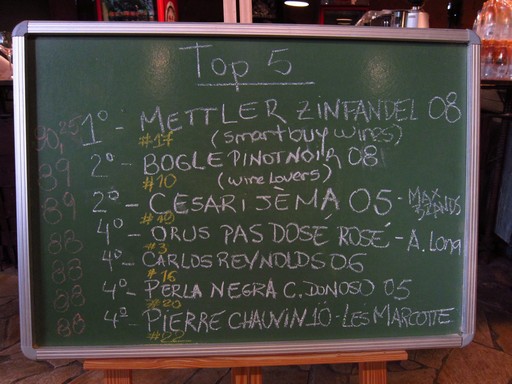 Top 5
90,25 1º - METTLER ZINFANDEL 08
#17 (smartbuy wines)
89 2º - BOGLE PINOT NOIR 08
#10 (wine lovers)
89 2º - CESARI JÈMA 05 - MAX BRANDS
#19
88 4º - ORUS PAS DOSÉ ROSÉ - A. Long
#3
88 4º - CARLOS REYNOLDS 06
#16
88 4º - PERLA NEGRA C. DONOSO 05
#20
88 4º - PIERRE CHAUVIN 10 - LES MARCOTTE
#22